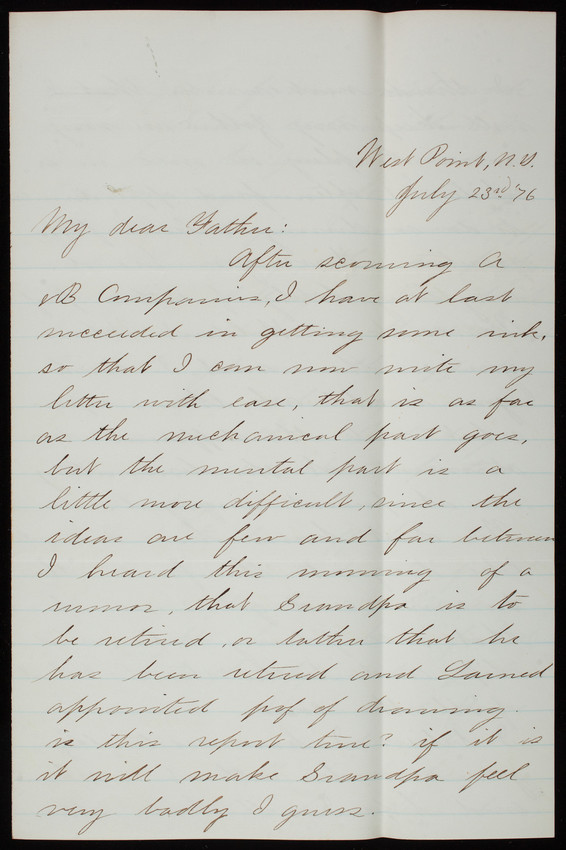 West Point, N.Y.
July 23rd '76
My dear Father:
After scouring A
&B Companies, I have at last
succeeded in getting some ink,
so that I can now write my
letter with ease, that is as far
as the mechanical part goes,
but the mental part is a
little more difficult, since the
ideas are few and far between
I heard this morning of a
rumor, that Grandpa is to
be retired, or rather that he
has been retired and Larned
appointed prof of drawing.
is this report true? if it is
it will make Grandpa feel
very badly I guess.